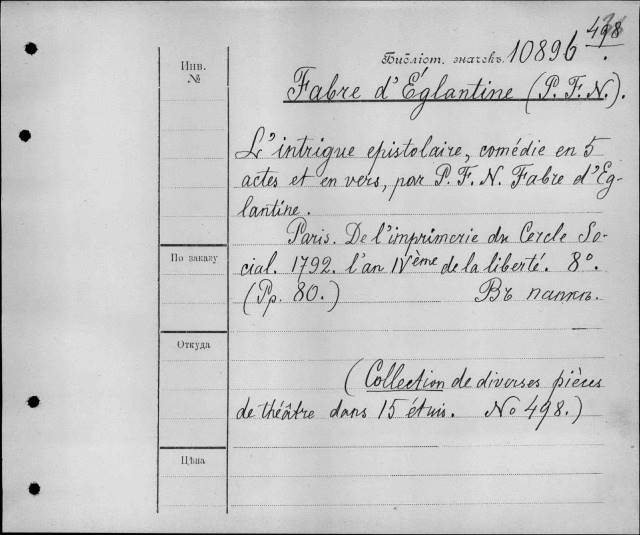 498
Библіот. значекъ. 10896.
Инв.
№
Fabre d'Églantine (P. F. N.).
L'intrigue epistolaire, comédie en 5
actes et en vers, par P. F. N. Fabre d'Eg-
lantine.
Paris. De l'imprimerie du Cercle So-
По заказу
cial. 1792. l'an IVème de la liberté. 8°.
(Pp. 80.) Въ папкѣ.
Откуда
(Collection de diverses pièces
de théâtre dans 15 étuis. No 498.)
Цѣна